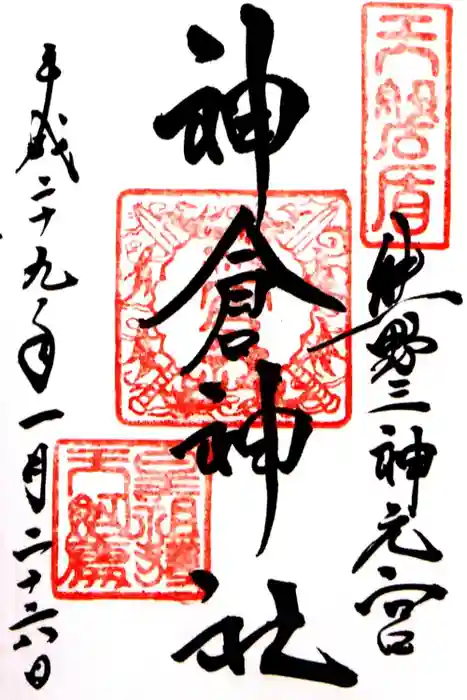 天磐盾
熊野三神元宮
神倉神社
平成二十九年一月二十六日